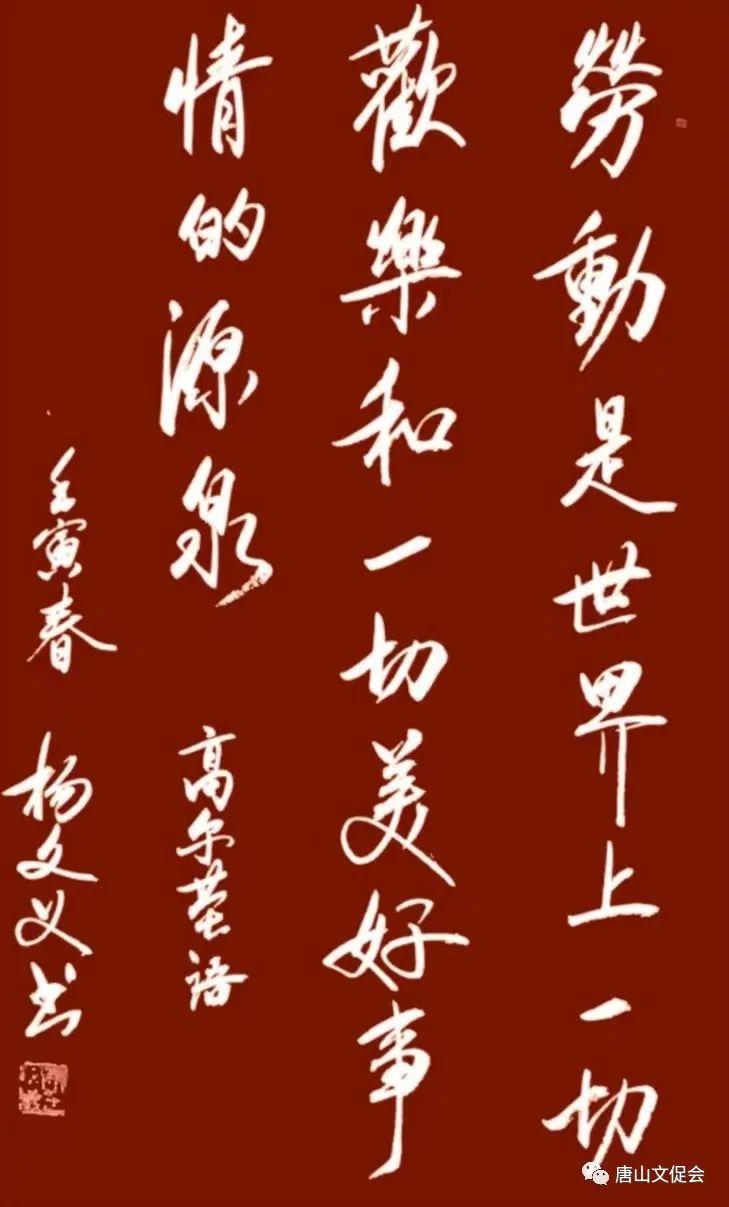 勞動是世界上一切
歡樂和一切美好事
情的源泉
高尔基语
壬寅春 杨文义书
唐山文促会